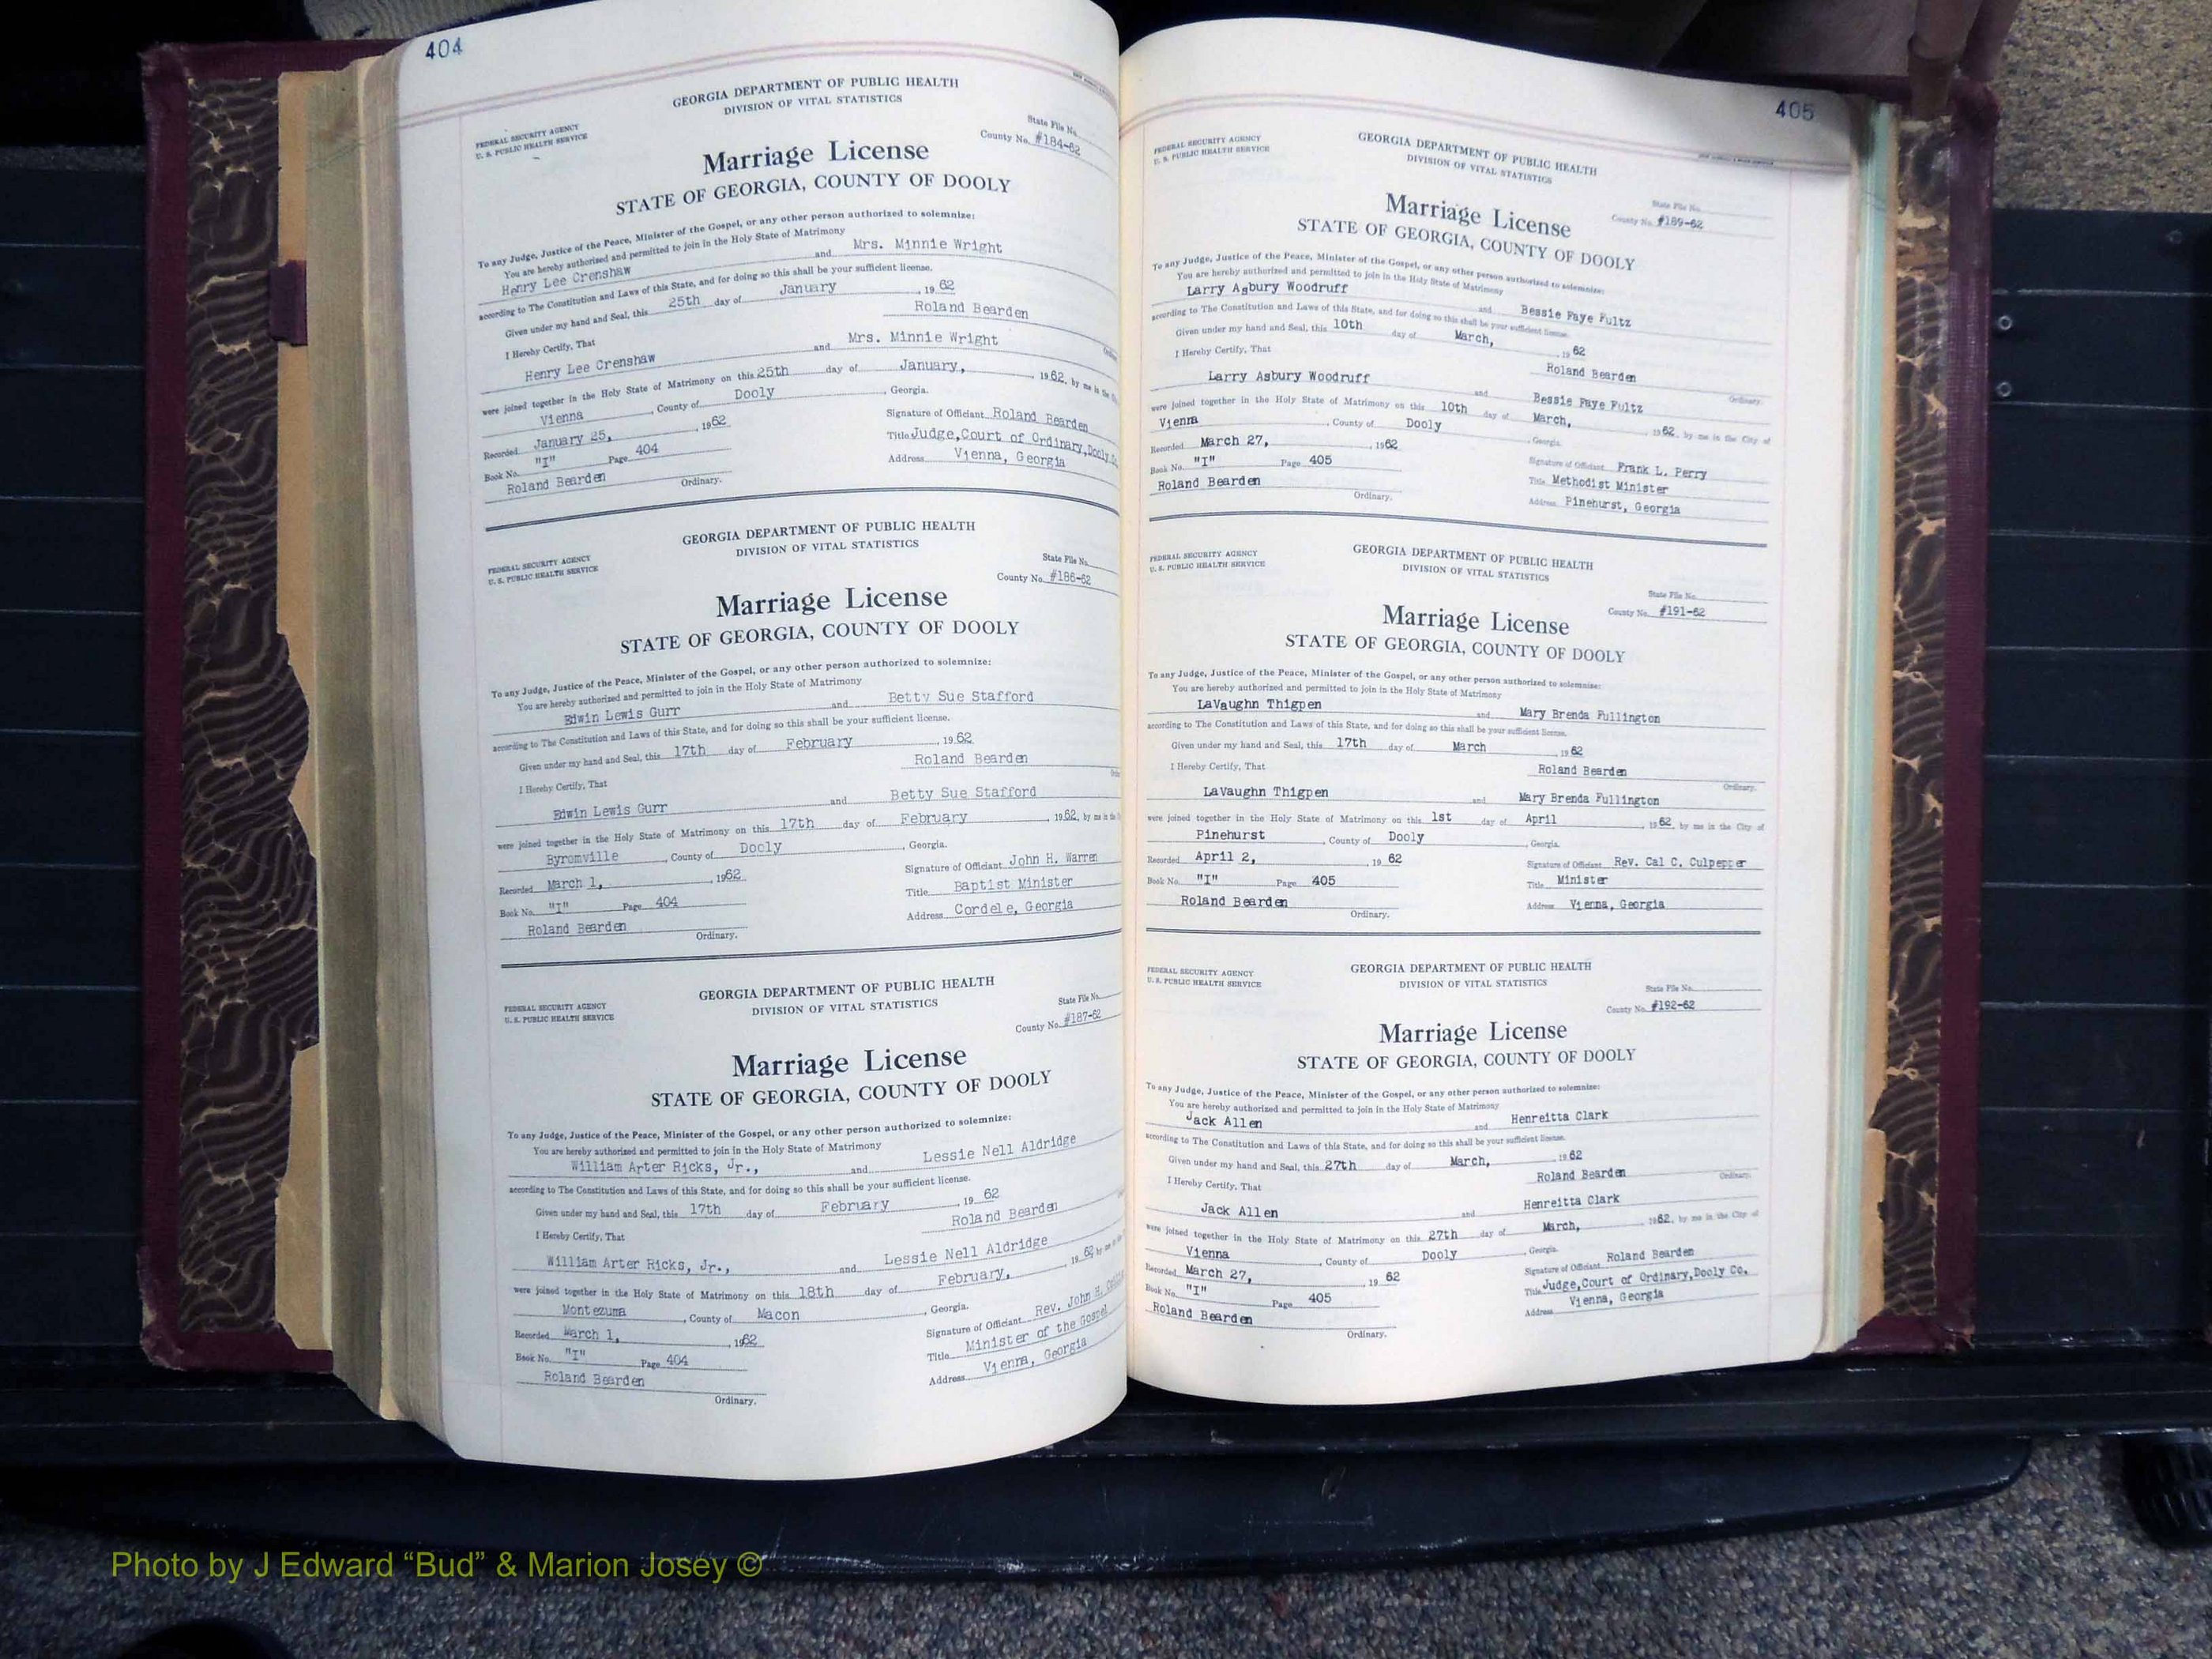 404
GEORGIA DEPARTMENT OF PUBLIC HEALTH
DIVISION OF VITAL STATISTICS
FEDERAL SECURITY AGENCY
U. S. PUBLIC HEALTH SERVICE
State File No.
County No. #184-62
Marriage License
STATE OF GEORGIA, COUNTY OF DOOLY
To any Judge, Justice of the Peace, Minister of the Gospel, or any other person authorized to solemnize:
You are hereby authorized and permitted to join in the Holy State of Matrimony
Henry Lee Crenshaw and Mrs. Minnie Wright
according to The Constitution and Laws of this State, and for doing so this shall be your sufficient license.
Given under my hand and Seal, this 25th day of January , 19 62
Roland Bearden
I Hereby Certify, That
Henry Lee Crenshaw and Mrs. Minnie Wright
were joined together in the Holy State of Matrimony on this 25th day of January, 1962, by me in the
Vienna , County of Dooly , Georgia.
Recorded January 25, , 1962
Signature of Officiant Roland Bearden
Book No. "I" Page 404
Title Judge,Court of Ordinary,Dooly
Roland Bearden
Address Vienna, Georgia
Ordinary.
GEORGIA DEPARTMENT OF PUBLIC HEALTH
DIVISION OF VITAL STATISTICS
FEDERAL SECURITY AGENCY
U. S. PUBLIC HEALTH SERVICE
State File No.
County No. #186-62
Marriage License
STATE OF GEORGIA, COUNTY OF DOOLY
To any Judge, Justice of the Peace, Minister of the Gospel, or any other person authorized to solemnize:
You are hereby authorized and permitted to join in the Holy State of Matrimony
Edwin Lewis Gurr and Betty Sue Stafford
according to The Constitution and Laws of this State, and for doing so this shall be your sufficient license.
Given under my hand and Seal, this 17th day of February , 19 62
Roland Bearden
I Hereby Certify, That
Edwin Lewis Gurr and Betty Sue Stafford
were joined together in the Holy State of Matrimony on this 17th day of February , 1962, by me in the
Byromville , County of Dooly , Georgia.
Recorded March 1, , 1962
Signature of Officiant John H. Warren
Book No. "I" Page 404
Title Baptist Minister
Roland Bearden
Address Cordele, Georgia
Ordinary.
GEORGIA DEPARTMENT OF PUBLIC HEALTH
DIVISION OF VITAL STATISTICS
FEDERAL SECURITY AGENCY
U. S. PUBLIC HEALTH SERVICE
State File No.
County No. #187-62
Marriage License
STATE OF GEORGIA, COUNTY OF DOOLY
To any Judge, Justice of the Peace, Minister of the Gospel, or any other person authorized to solemnize:
You are hereby authorized and permitted to join in the Holy State of Matrimony
William Arter Ricks, Jr., and Lessie Nell Aldridge
according to The Constitution and Laws of this State, and for doing so this shall be your sufficient license.
Given under my hand and Seal, this 17th day of February , 19 62
Roland Bearden
I Hereby Certify, That
William Arter Ricks, Jr., and Lessie Nell Aldridge
were joined together in the Holy State of Matrimony on this 18th day of February, 19 62, by me in the
Montezuma , County of Macon , Georgia.
Recorded March 1, , 1962
Signature of Officiant Rev. John H.
Book No. "I" Page 404
Title Minister of the Gospel
Roland Bearden
Address Vienna, Georgia
Ordinary.
405
FEDERAL SECURITY AGENCY
U. S. PUBLIC HEALTH SERVICE
GEORGIA DEPARTMENT OF PUBLIC HEALTH
DIVISION OF VITAL STATISTICS
State File No.
County No. #189-62
Marriage License
STATE OF GEORGIA, COUNTY OF DOOLY
To any Judge, Justice of the Peace, Minister of the Gospel, or any other person authorized to solemnize:
You are hereby authorized and permitted to join in the Holy State of Matrimony
Larry Asbury Woodruff and Bessie Faye Fultz
according to The Constitution and Laws of this State, and for doing so this shall be your sufficient license.
Given under my hand and Seal, this 10th day of March, , 19 62
I Hereby Certify, That
Roland Bearden
Ordinary.
Larry Asbury Woodruff and Bessie Faye Fultz
were joined together in the Holy State of Matrimony on this 10th day of March, 1962, by me in the City of
Vienna , County of Dooly , Georgia.
Recorded March 27, , 1962
Signature of Officiant Frank L. Perry
Book No. "I" Page 405
Title Methodist Minister
Roland Bearden
Address Pinehurst, Georgia
Ordinary.
FEDERAL SECURITY AGENCY
U. S. PUBLIC HEALTH SERVICE
GEORGIA DEPARTMENT OF PUBLIC HEALTH
DIVISION OF VITAL STATISTICS
State File No.
County No. #191-62
Marriage License
STATE OF GEORGIA, COUNTY OF DOOLY
To any Judge, Justice of the Peace, Minister of the Gospel, or any other person authorized to solemnize:
You are hereby authorized and permitted to join in the Holy State of Matrimony
LaVaughn Thigpen and Mary Brenda Fullington
according to The Constitution and Laws of this State, and for doing so this shall be your sufficient license.
Given under my hand and Seal, this 17th day of March , 19 62
I Hereby Certify, That
Roland Bearden
Ordinary.
LaVaughn Thigpen and Mary Brenda Fullington
were joined together in the Holy State of Matrimony on this 1st day of April , 19 62, by me in the City of
Pinehurst , County of Dooly , Georgia.
Recorded April 2, , 19 62
Signature of Officiant Rev. Cal C. Culpepper
Book No. "I" Page 405
Title Minister
Roland Bearden
Address Vienna, Georgia
Ordinary.
FEDERAL SECURITY AGENCY
U. S. PUBLIC HEALTH SERVICE
GEORGIA DEPARTMENT OF PUBLIC HEALTH
DIVISION OF VITAL STATISTICS
State File No.
County No. #192-62
Marriage License
STATE OF GEORGIA, COUNTY OF DOOLY
To any Judge, Justice of the Peace, Minister of the Gospel, or any other person authorized to solemnize:
You are hereby authorized and permitted to join in the Holy State of Matrimony
Jack Allen and Henreitta Clark
according to The Constitution and Laws of this State, and for doing so this shall be your sufficient license.
Given under my hand and Seal, this 27th day of March, , 19 62
I Hereby Certify, That
Roland Bearden
Ordinary.
Jack Allen and Henreitta Clark
were joined together in the Holy State of Matrimony on this 27th day of March, 1962, by me in the City of
Vienna , County of Dooly , Georgia.
Recorded March 27, , 19 62
Signature of Officiant Roland Bearden
Book No. "I" Page 405
Title Judge,Court of Ordinary,Dooly Co.
Roland Bearden
Address Vienna, Georgia
Ordinary.
Photo by J Edward “Bud” & Marion Josey ©